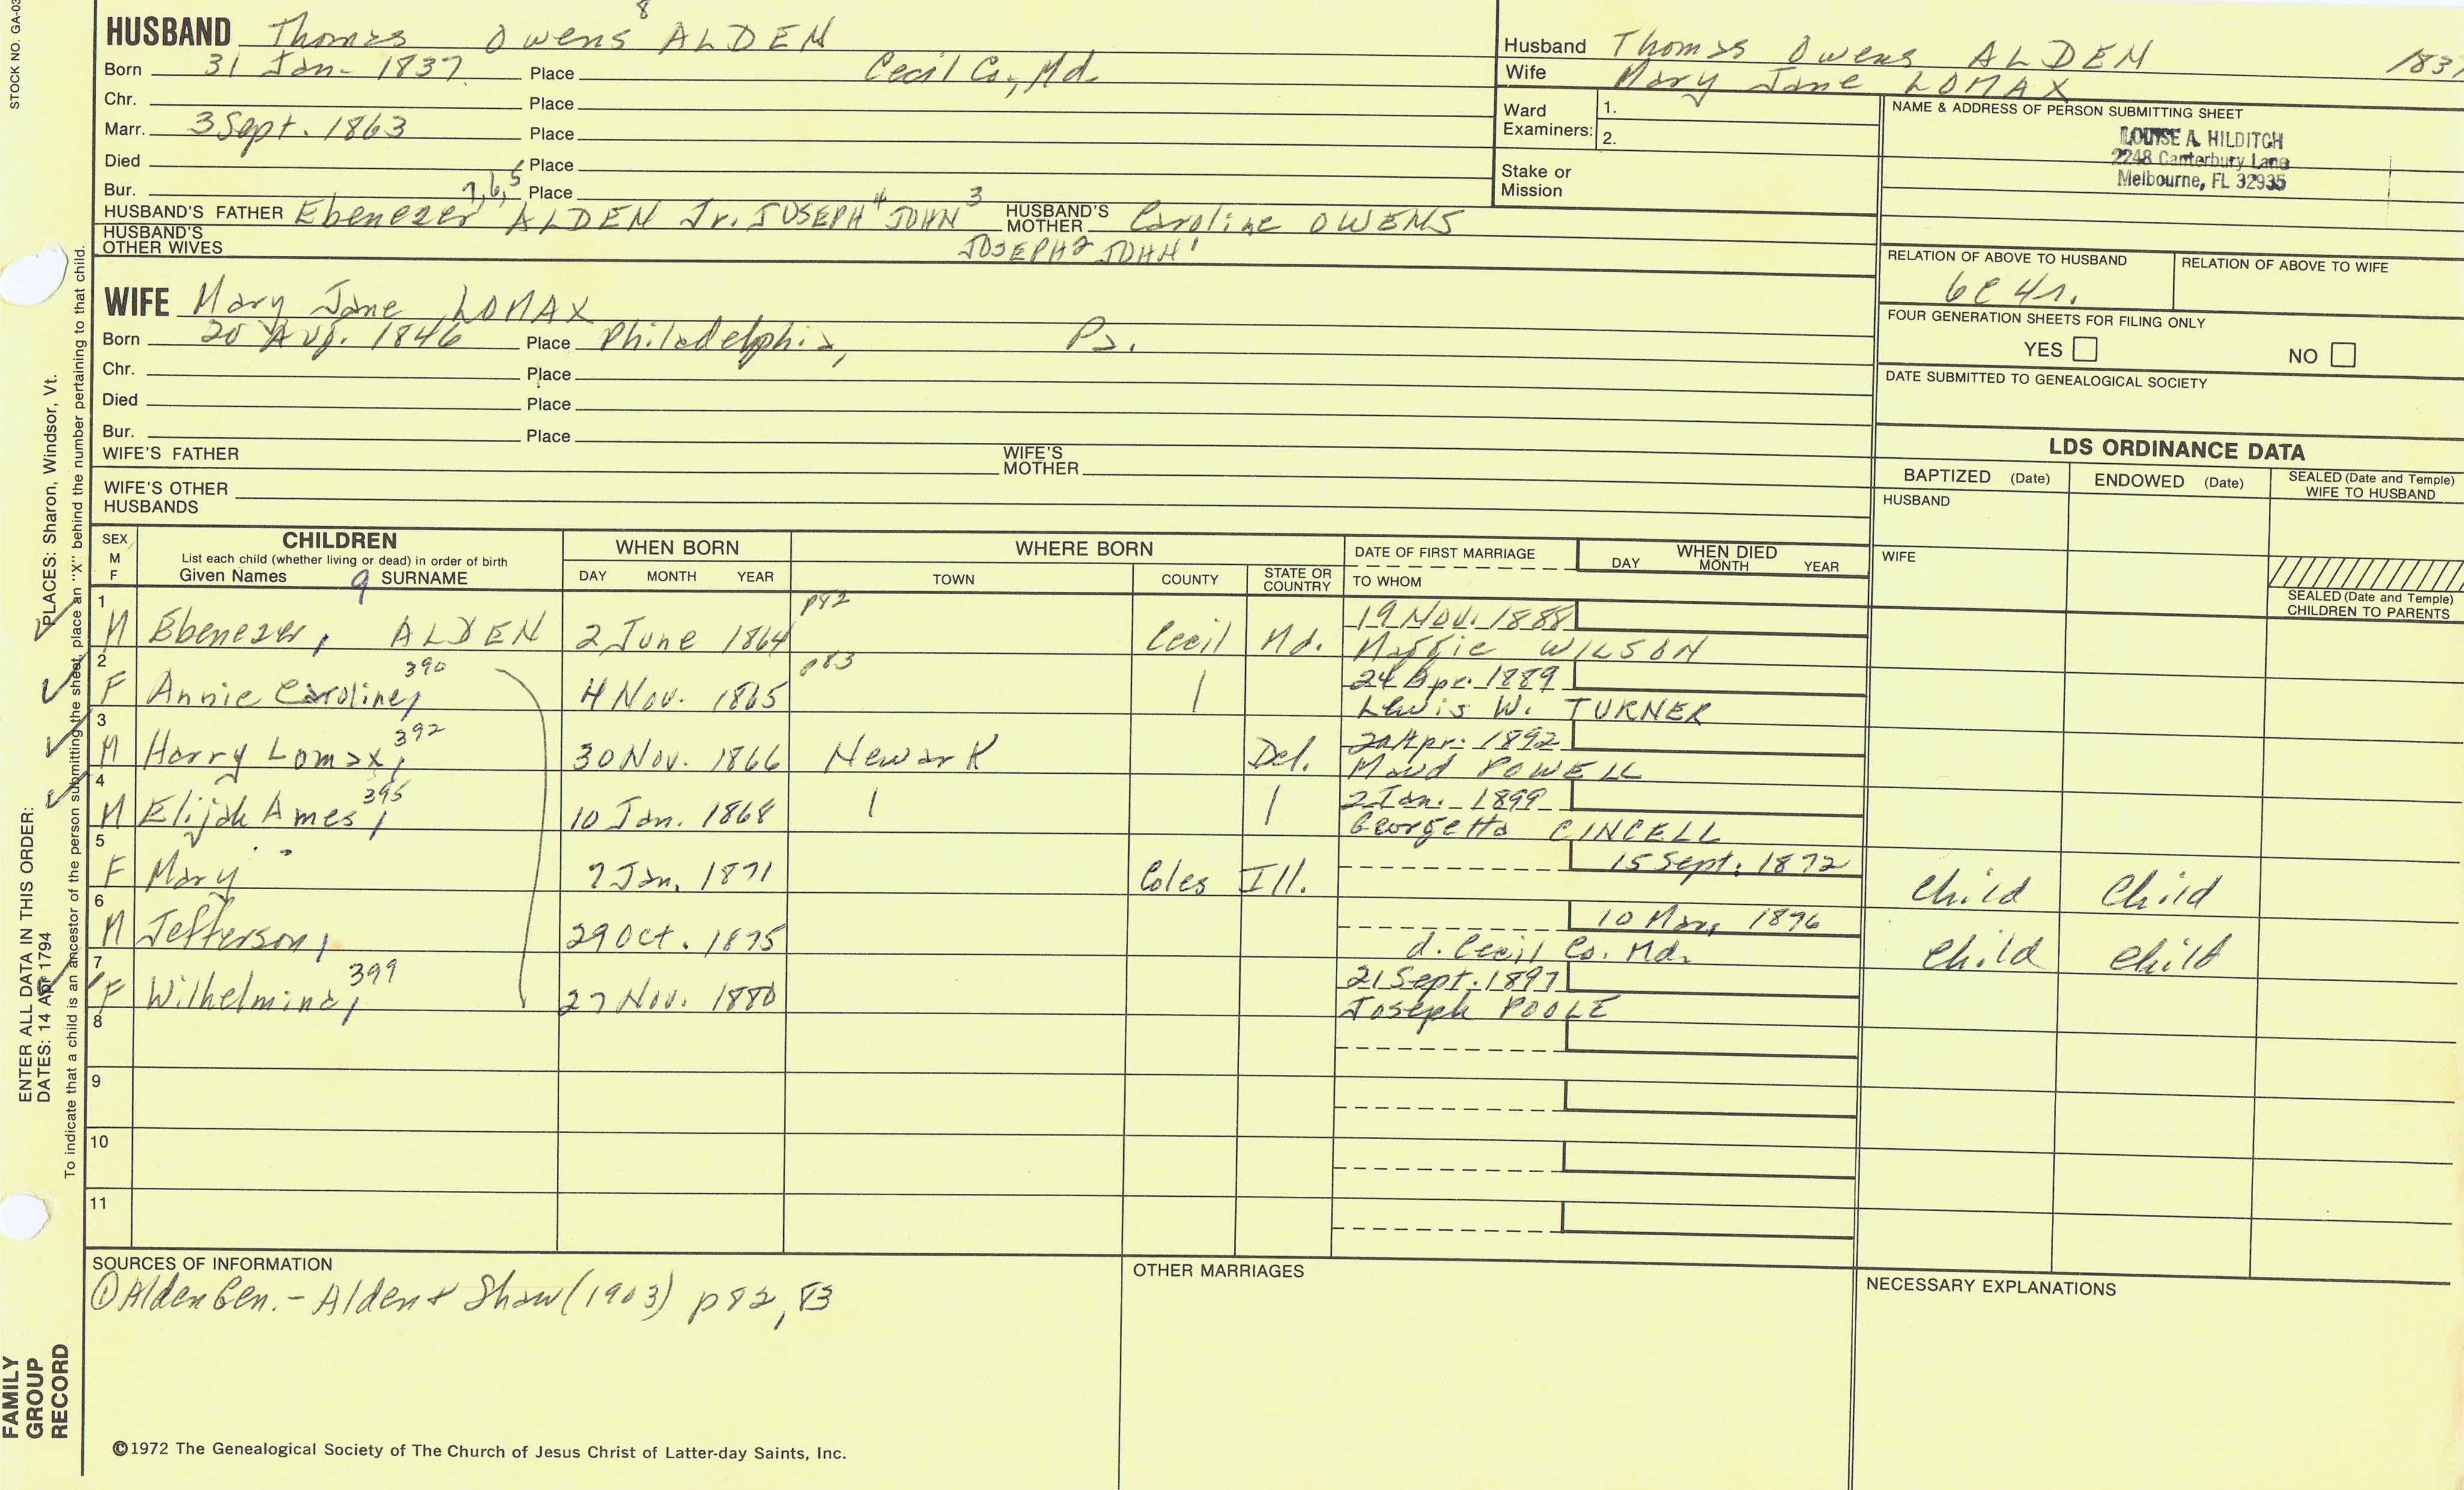 STOCK NO. GA-03
8
HUSBAND Thomas Owens ALDEN
Born 31 Jan. 1837 Place Cecil Co., Md.
Chr. Place
Marr. 3 Sept. 1863 Place
Died Place
Bur. Place
7,6,5
HUSBAND'S FATHER Ebenezer ALDEN Jr. JOSEPH 4 JOHN 3 HUSBAND'S MOTHER Caroline OWENS
HUSBAND'S OTHER WIVES JOSEPH 2 JOHN 1
WIFE Mary Jane LOMAX
Born 20 Aug. 1846 Place Philadelphia, Pa.
Chr. Place
Died Place
Bur. Place
WIFE'S FATHER WIFE'S MOTHER
WIFE'S OTHER HUSBANDS
Husband Thomas Owens ALDEN 1837
Wife Mary Jane LOMAX
Ward Examiners: 1.
2.
Stake or Mission
NAME & ADDRESS OF PERSON SUBMITTING SHEET
LOUISE A. HILDITCH
2248 Canterbury Lane
Melbourne, FL 32935
RELATION OF ABOVE TO HUSBAND RELATION OF ABOVE TO WIFE
6C 4r.
FOUR GENERATION SHEETS FOR FILING ONLY
YES NO
DATE SUBMITTED TO GENEALOGICAL SOCIETY
LDS ORDINANCE DATA
BAPTIZED (Date) ENDOWED (Date) SEALED (Date and Temple) WIFE TO HUSBAND
HUSBAND
WIFE
SEALED (Date and Temple) CHILDREN TO PARENTS
SEX M F CHILDREN WHEN BORN WHERE BORN DATE OF FIRST MARRIAGE WHEN DIED
List each child (whether living or dead) in order of birth
Given Names 9 SURNAME DAY MONTH YEAR TOWN COUNTY STATE OR COUNTRY TO WHOM DAY MONTH YEAR
1 p82 19 Nov. 1888
M Ebenezer, ALDEN 2 June 1864 Cecil Md. Maggie WILSON
2 390 p83 24 Apr. 1889
F Annie Caroline, 4 Nov. 1865 Lewis W. TURNER
3 392 20 Apr. 1892
M Harry Lomax, 30 Nov. 1866 Newark Del. Maud POWELL
4 395 2 Jan. 1899
M Elijah Ames, 10 Jan. 1868 Georgetta CINCELL
5 15 Sept. 1872
F Mary 7 Jan. 1871 Coles Ill. Child Child
6 10 Mar. 1876
M Jefferson, 29 Oct. 1875 d. Cecil Co. Md. Child Child
7 399 21 Sept. 1897
F Wilhelmina, 27 Nov. 1880 Joseph POOLE
8
9
10
11
SOURCES OF INFORMATION
① Alden Gen. - Alden & Shaw (1903) p82, 83
OTHER MARRIAGES
NECESSARY EXPLANATIONS
©1972 The Genealogical Society of The Church of Jesus Christ of Latter-day Saints, Inc.
FAMILY GROUP RECORD
ENTER ALL DATA IN THIS ORDER:
DATES: 14 Apr 1794
PLACES: Sharon, Windsor, Vt.
To indicate that a child is an ancestor of the person submitting the sheet, place an "X" behind the number pertaining to that child.